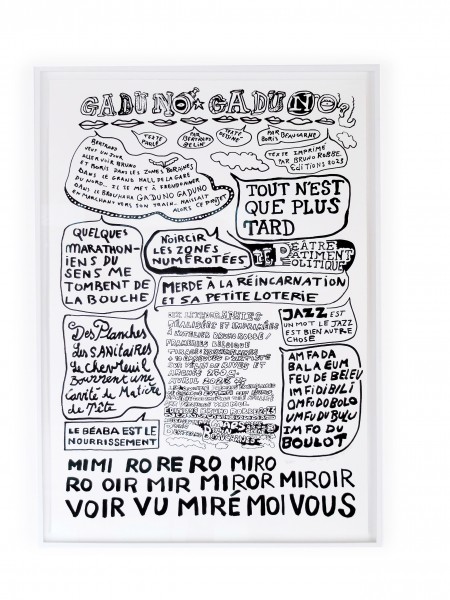 GADUNO★GADUNO?
TEXTE
PARLÉ
PAR BERTRAND
BELIN
TEXTE
DESSINÉ
PAR
BORIS BEAUCARNE
TEXTE IMPRIMÉ
PAR BRUNO ROBBE
Editions 2023
BERTRAND
VEUT UN JOUR
ALLER VOIR BRUNO
ET BORIS DANS LES ZONES
DANS LE GRAND HALL DE LA GARE
DU NORD... IL SE MET À FREDONNER
DANS LE BROUHAHA GADUNO GADUNO
EN MARCHANT VERS SON TRAIN... NAISSAIT
ALORS CE PROJET
TOUT N'EST
QUE PLUS
TARD
QUELQUES
MARATHON-
IENS DU
SENS ME
TOMBENT DE
LA BOUCHE
NOIRCIR
LES ZONES
NUMÉROTÉES
LE PEÂTRE
PATIMENT
POLITIQUE
MERDE À LA RÉINCARNATION
ET SA PETITE LOTERIE
JAZZ EST
UN MOT LE JAZZ
EST BIEN AUTRE
CHOSE
Des Planches
Les SANitaires
Le chevreuil
Bourrent une
Cavité de Matière
de Tête
DIX LITHOGRAPHIES
RÉALISÉES ET IMPRIMÉES
À L'ATELIER BRUNO ROBBE /
FRAMERIES BELGIQUE
SUR VÉLIN DE RIVES ET
AVRIL 2023
AMFADA
BALAEUM
FEU DE BELEU
IMFO DI BILI
IMFO DO BOLO
UMFU DU BULU
IMFO DU
BOULOT
LE BÉABA EST LE
NOURRISSEMENT
MIMI RO RE RO MIRO
RO OIR MIR MIROR MIROIR
VOIR VU MIRÉ MOI VOUS